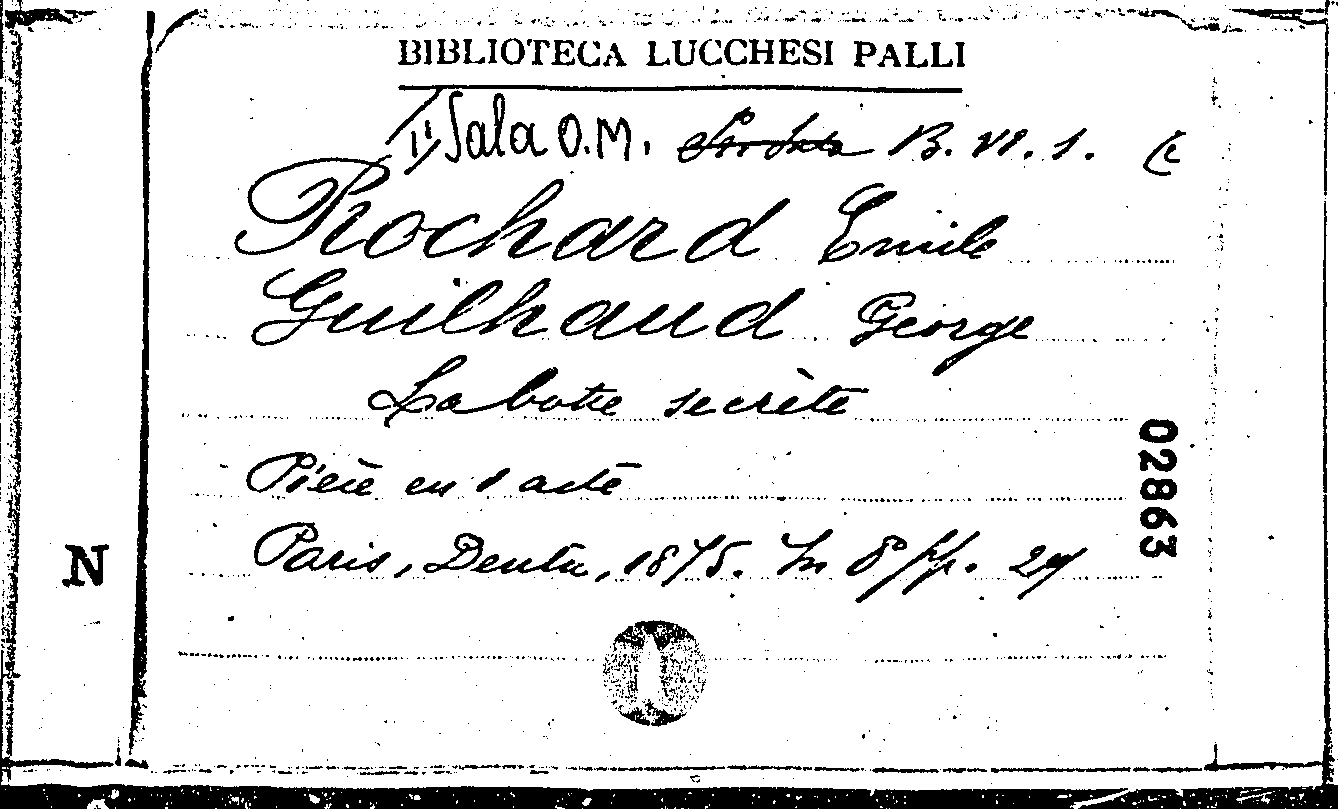 BIBLIOTECA LUCCHESI PALLI
II Sala O.M. B. VI. 1. (
Rochard Emile
Guilhaud George
La botte secrète
Pièce en 1 acte
Paris, Dentu, 1875. In 8° pp. 29
02863
N